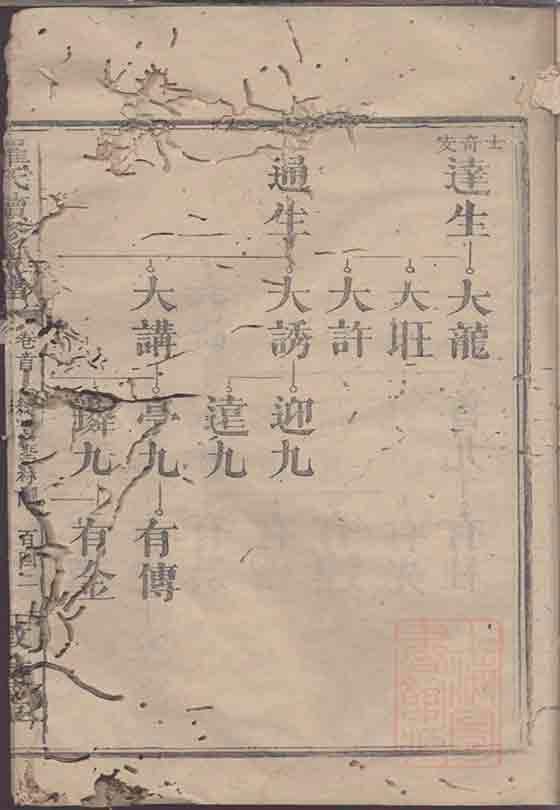 士奇支
達生
大龍
大旺
大許
通生
大誘
迎九
達九
大講
亭九
有傳
九
有金
氏
卷首
百四二